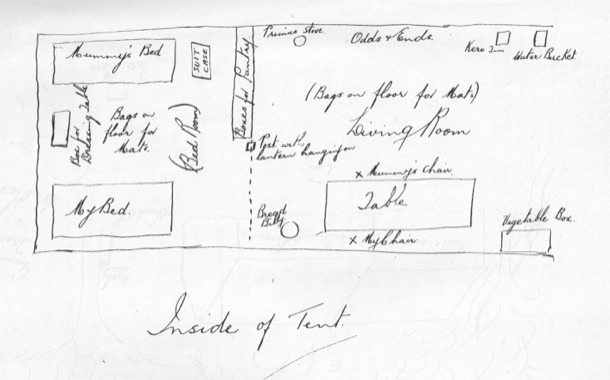 Mummy's Bed
SUIT
CASE
Box for
Dressing Table
Bags on
floor for
Mats.
(Bed Room)
My Bed.
Boxes for Pantry.
Primus stove
Odds & Ends.
Kero Tin
Water Bucket
(Bags on floor for Mats)
Living Room
Post with
lantern hanging on
x Mummy's Chair
Table
x My Chair
Bread
Billy
Vegetable Box.
Inside of Tent.